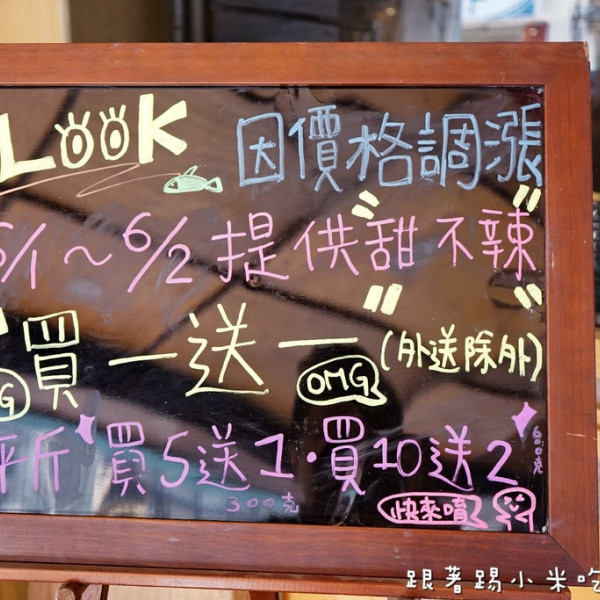 LOOK 因價格調漲
6/1～6/2提供"甜不辣"
買一送一 (外送除外)
OMG
斤 買5送1·買10送2
300克
600克
快來唷
跟著踢小米吃